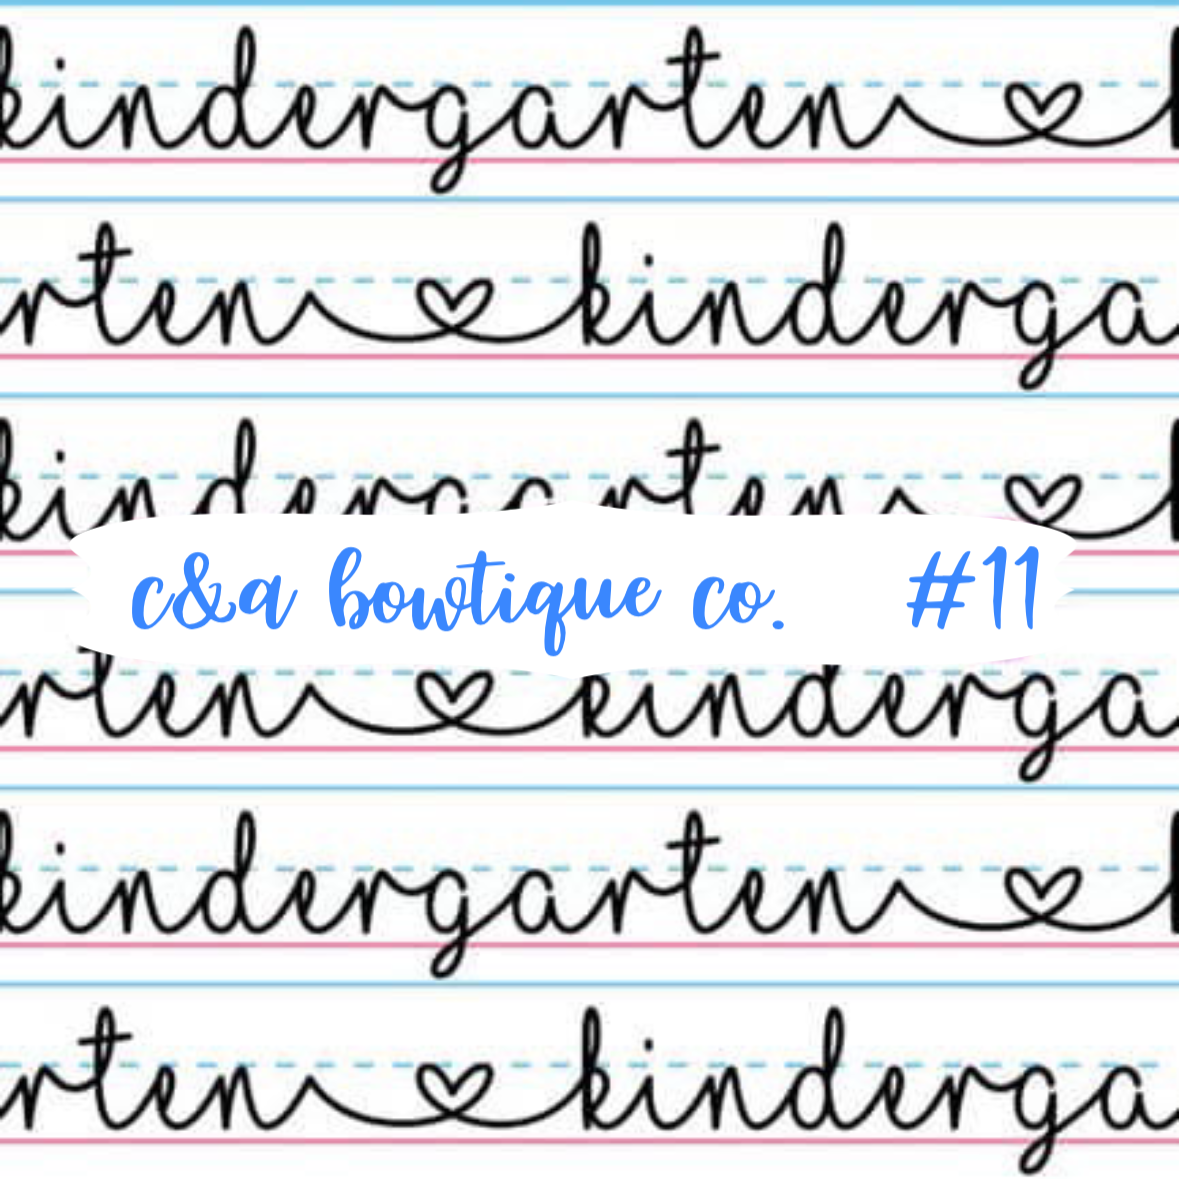 kindergarten
rten kinderga
kindergarten
c&a bowtique co. #11
rten kinderga
kindergarten
rten kinderga